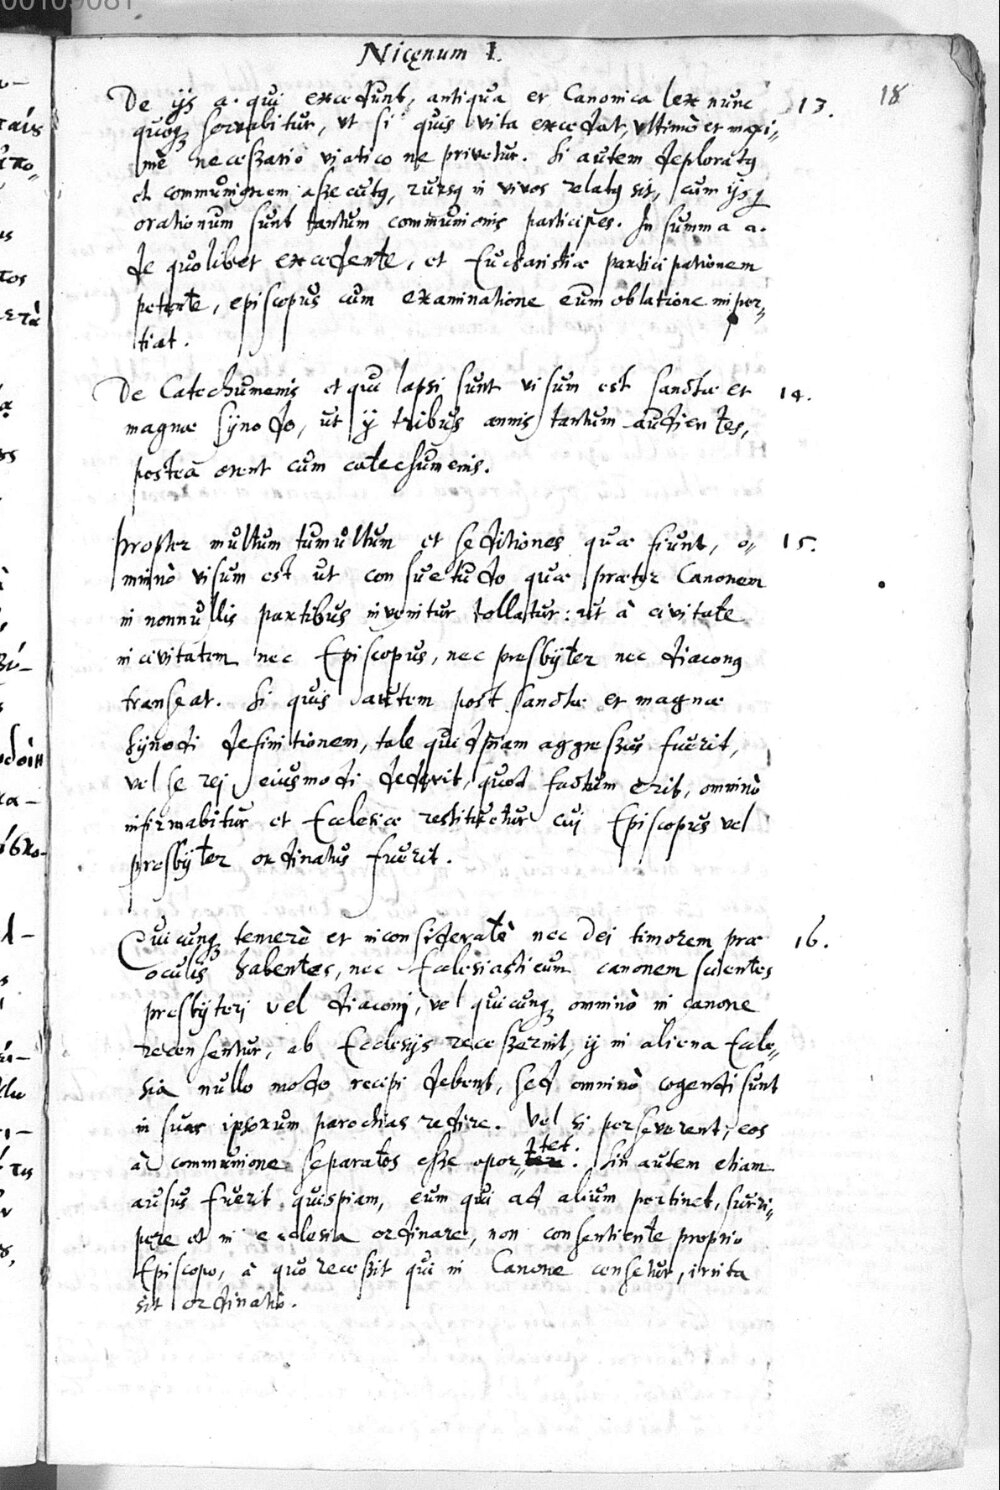 00109081
Nicęnum I.
18
De ijs a. qui excedunt, antiqua et Canonica lex nunc 13.
quoqz servabitur, ut si quis vita excedat, ultimo et maxi„
mè necessario viatico ne privetur. Si autem deploratq
et communionem assecutq, rursq in vivos relatq sit, cum ijs q
orationum sunt tantum communionis participes. In summa a.
de quolibet excedente, et Eucharistiæ participationem
petente, episcopus cum examinatione eum oblatione imper„
tiat.
De Catechumenis et qui lapsi sunt visum est sanctæ et 14.
magnæ synodo, ut ij tribus annis tantum audientes,
posteà orent cum catechumenis.
Propter multum tumultum et seditiones quæ fiunt, o„ 15.
mninò visum est ut consuetudo quæ præter Canonem
in nonnullis partibus invenitur tollatur: ut à civitate
in civitatem nec Episcopus, nec presbyter nec diaconq
transeat. Si quis autem post sanctæ et magnæ
synodi definitionem, tale quidpiam aggressus fuerit,
vel se rej eiusmodi dederit, quod factum erit, omninò
infirmabitur et Ecclesiæ restituetur cuj Episcopus vel
presbyter ordinatus fuerit.
Quicunqz temerè et inconsideratè nec Dei timorem præ 16.
oculis habentes, nec Ecclesiasticum canonem scientes
presbyterj vel diaconj, vel quicunqz omninò in canone
recensentur, ab Ecclesijs recesserint, ij in aliena Eccle„
sia nullo modo recipi debent, sed omninò cogendi sunt
in suas ipsorum parochias redire. Vel si perseverent, eos
à communione separatos esse opor„tet. Sin autem etiam
ausus fuerit quispiam, eum qui ad alium pertinet, surri„
pere et in ecclesia ordinare, non consentiente proprio
Episcopo, à quo recessit qui in Canone censetur, irrita
sit ordinatio.